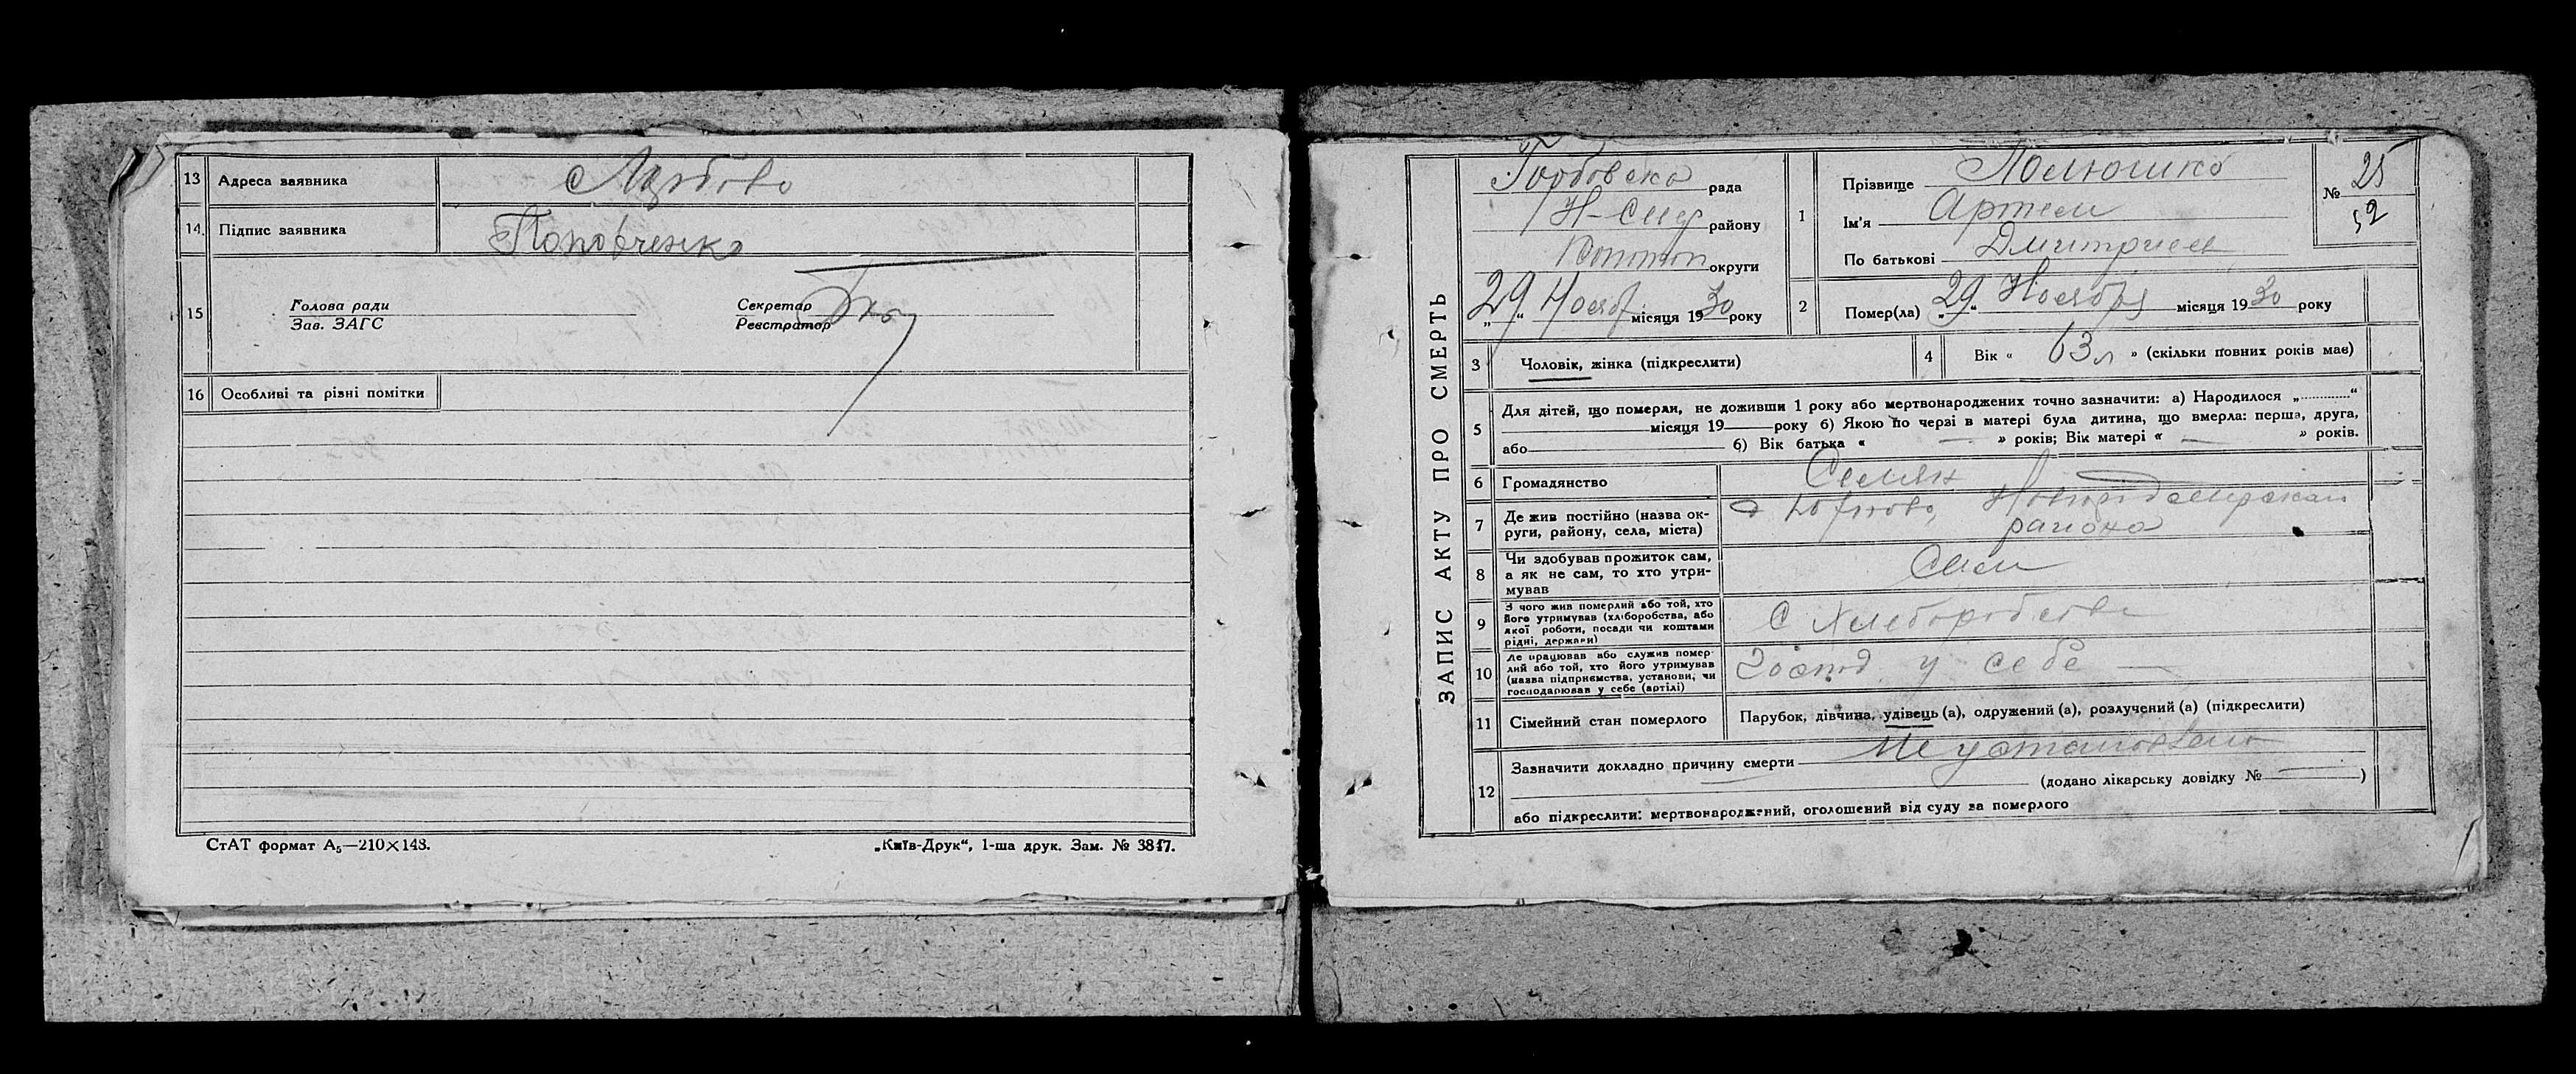 13 Адреса заявника
14. Підпис заявника Поповченко
15 Голова ради
Зав. ЗАГС
Секретар
Реєстратор
16 Особливі та різні помітки
СтАТ формат А₅—210×148.
„Київ-Друк“, 1-ша друк. Зам. № 3817.
ЗАПИС АКТУ ПРО СМЕРТЬ
рада
Н-Сівер району
Коnотоп округи
„29“ Нояб місяця 1930 року
1 Прізвище
Ім'я Артем
По батькові
№ 25
52
2 Помер(ла) „29“ Ноября місяця 1930 року
3 Чоловік, жінка (підкреслити)
4 Вік « 63 л » (скільки повних років має)
5 Для дітей, що померли, не доживши 1 року або мертвонароджених точно зазначити: а) Народилося „ “
місяця 19 року б) Якою по черзі в матері була дитина, що вмерла: перша, друга,
або б) Вік батька « — » років; Вік матері « — » років.
6 Громадянство
7 Де жив постійно (назва ок-
руги, району, села, міста)
района
8 Чи здобував прожиток сам,
а як не сам, то хто утри-
мував
Сам
9 З чого жив померлий або той, хто
його утримував (хліборобства, або
якої роботи, посади чи коштами
рідні, держави)
С Хлеборобства
10 Де працював або служив помер-
лий або той, хто його утримував
(назва підприємства, установи, чи
господарював у себе (артілі)
у себе —
11 Сімейний стан померлого Парубок, дівчина, удівець (а), одружений (а), розлучений (а) (підкреслити)
12 Зазначити докладно причину смерти Не установлено
(додано лікарську довідку № — )
або підкреслити: мертвонароджений, оголошений від суду за померлого